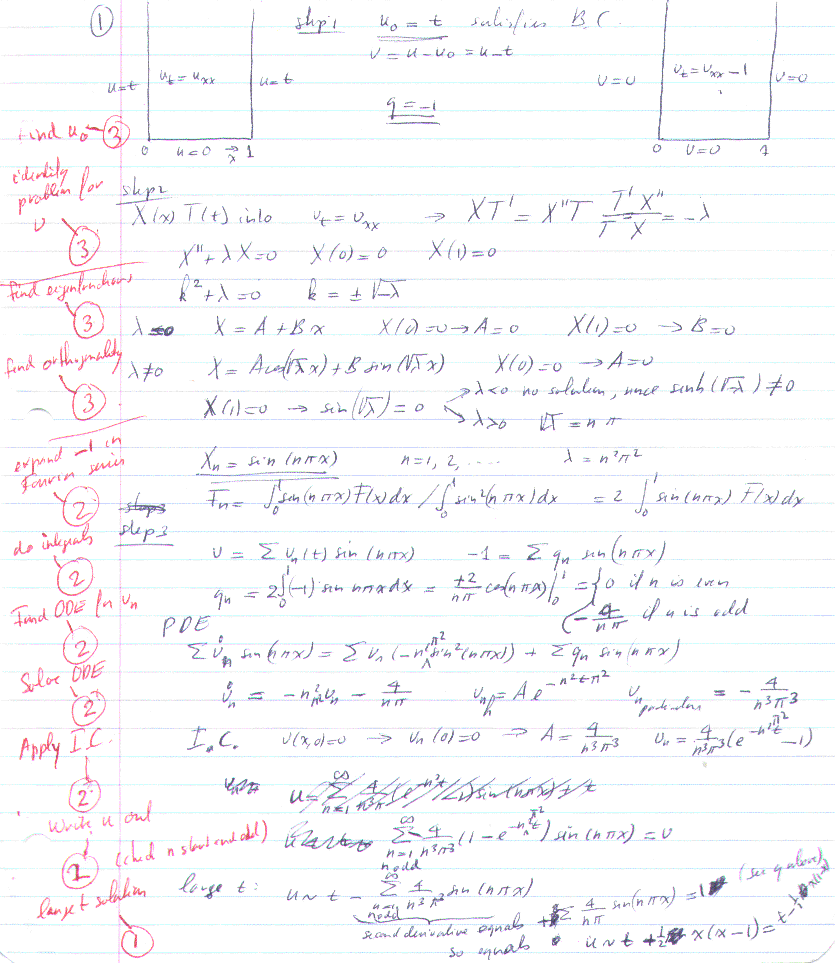 ① step 1 u₀ = t satisfies B.C.
v = u - u₀ = u - t
u=t u_t = u_xx u=t
v=0 v_t = v_xx - 1 v=0
q = -1
find u₀ ③
0 u=0 → x 1
0 v=0 1
identity problem for v ③
step 2
X(x) T(t) into v_t = v_xx → XT' = X''T T'/T = X''/X = -λ
X'' + λX = 0 X(0) = 0 X(1) = 0
find eigenfunctions ③
k² + λ = 0 k = ± √-λ
λ=0 X = A + Bx X(0)=0 → A=0 X(1)=0 → B=0
find orthogonality ③
λ≠0 X = A cos(√λ x) + B sin(√λ x) X(0)=0 → A=0
X(1)=0 → sin(√λ) = 0 → λ<0 no solution, since sinh(√-λ) ≠ 0
→ λ>0 √λ = nπ
expand -1 in Fourier series ②
X_n = sin(nπx) n=1, 2, .... λ = n²π²
step 3
F_n = ∫₀¹ sin(nπx) F(x) dx / ∫₀¹ sin²(nπx) dx = 2 ∫₀¹ sin(nπx) F(x) dx
do integrals ②
v = Σ v_n(t) sin(nπx) -1 = Σ q_n sin(nπx)
q_n = 2∫₀¹ (-1) sin nπx dx = +2/nπ cos(nπx)|₀¹ = { 0 if n is even
-4/nπ if n is odd
Find ODE for v_n ②
PDE
Σ v̇_n sin(nπx) = Σ v_n (-n²π² sin²(nπx)) + Σ q_n sin(nπx)
Solve ODE ②
v̇_n = -n²π² v_n - 4/nπ v_nh = A e^(-n²tπ²) v_n particular = -4/n³π³
Apply I.C. ②
In C. v(x,0)=0 → v_n(0)=0 → A = 4/n³π³ v_n = 4/n³π³ (e^(-n²tπ²) - 1)
Write u out ②
(check n start and odd)
Σ_{n=1, n odd}^∞ 4/n³π³ (1 - e^(-n²π²t)) sin(nπx) = v
large t solution ①
large t: u ~ t - Σ_{n=1, n odd}^∞ 4/n³π³ sin(nπx)
second derivative equals + Σ 4/nπ sin(nπx) = 1 (see q above)
so equals u ~ t + ½ x(x-1) = t - ½ x(1-x)